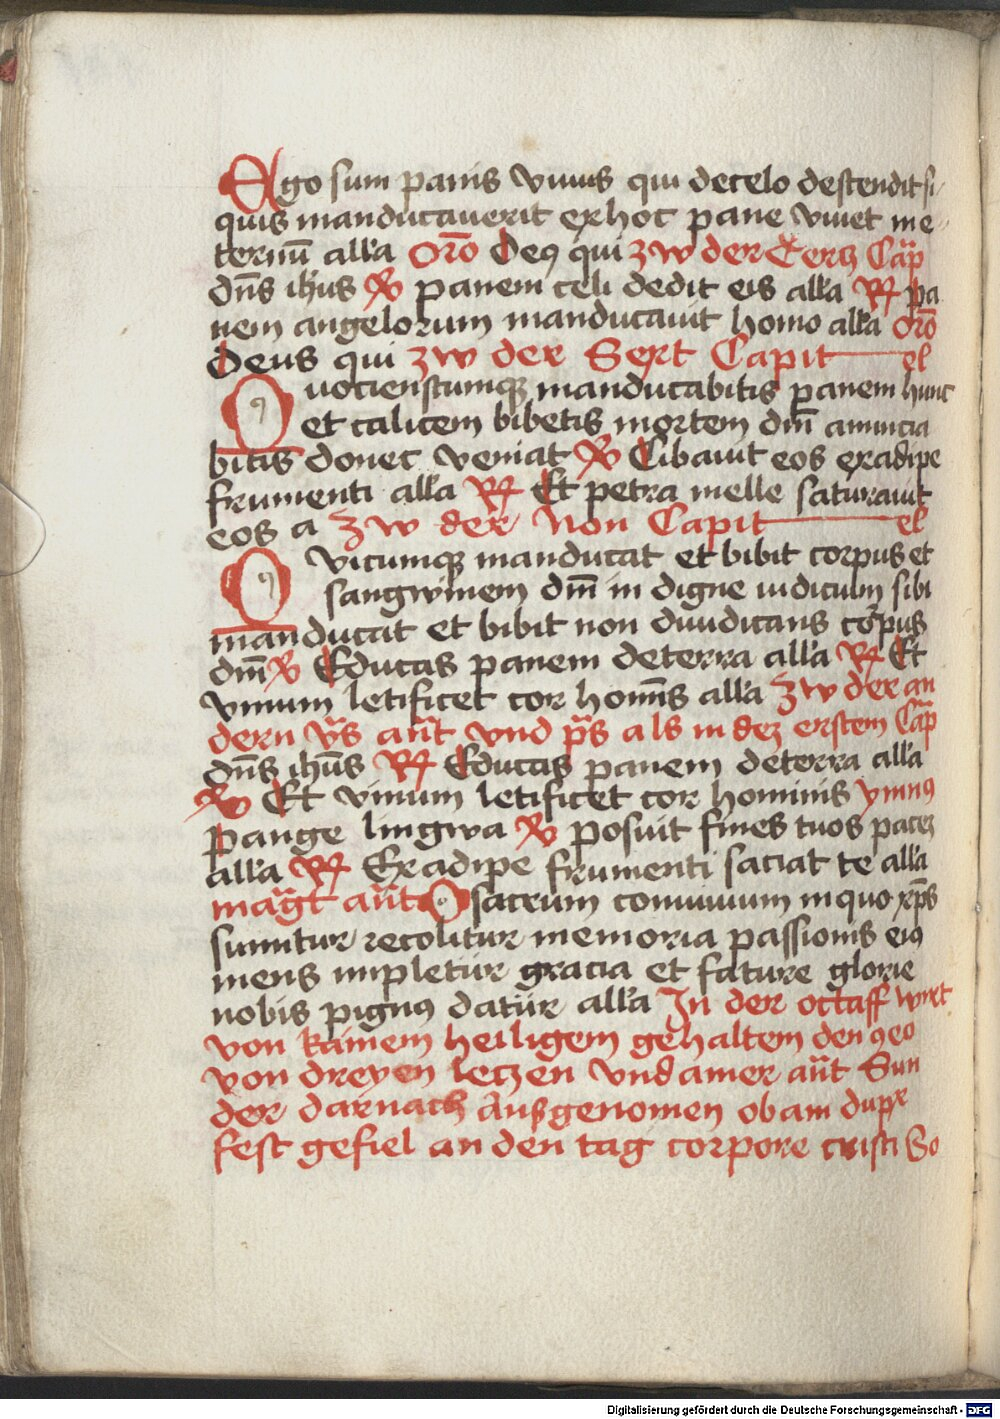 Ego sum panis viuus qui de celo descendit si
quis manducauerit ex hoc pane viuet in e-
ternū alla Orō Deꝯ qui zw der Tercz Cap̄
dn̄s ih̄us ℣ panem celi dedit eis alla ℟ pa
nem angelorum manducauit homo alla orō
Deus qui zw der Sext Capit el
Quocienscumqꝫ manducabitis panem hunc
et calicem bibetis mortem dm̄ annuncia
bitis donec veniat ℣ Cibauit eos ex adipe
frumenti alla ℟ Et petra melle saturauit
eos a zw der Non Capit el
Quicumqꝫ manducat et bibit corpus et
sangwinem dm̄ in digne iudicium sibi
manducat et bibit non diiudicans corpus
dm̄ ℣ Educas panem de terra alla ℟ Et
vinum letificet cor homīs alla zw der an
dern vs̄ an̄t vnd ps̄ als in dez erstem Cap̄
dn̄s ihūs ℟ Educas panem de terra alla
℣ Et vinum letificet cor hominis ymnꝯ
Pange lingwa ℣ posuit fines tuos pacez
alla ℟ Ex adipe frumenti saciat te alla
mag̅t an̄t O sacrum conuiuium in quo xp̄s
sumitur recolitur memoria passionis eiꝯ
mens impletur gracia et future glorie
nobis pignꝯ datur alla In der octaff wirt
von kainem heiligem gehaltem den ꝯeo
von dreyen leczen vnd ainer an̄t Sun
der darnach Ausgenomen ob ain duplex
fest gefiel an den tag corpore cristi So
Digitalisierung gefördert durch die Deutsche Forschungsgemeinschaft - DFG